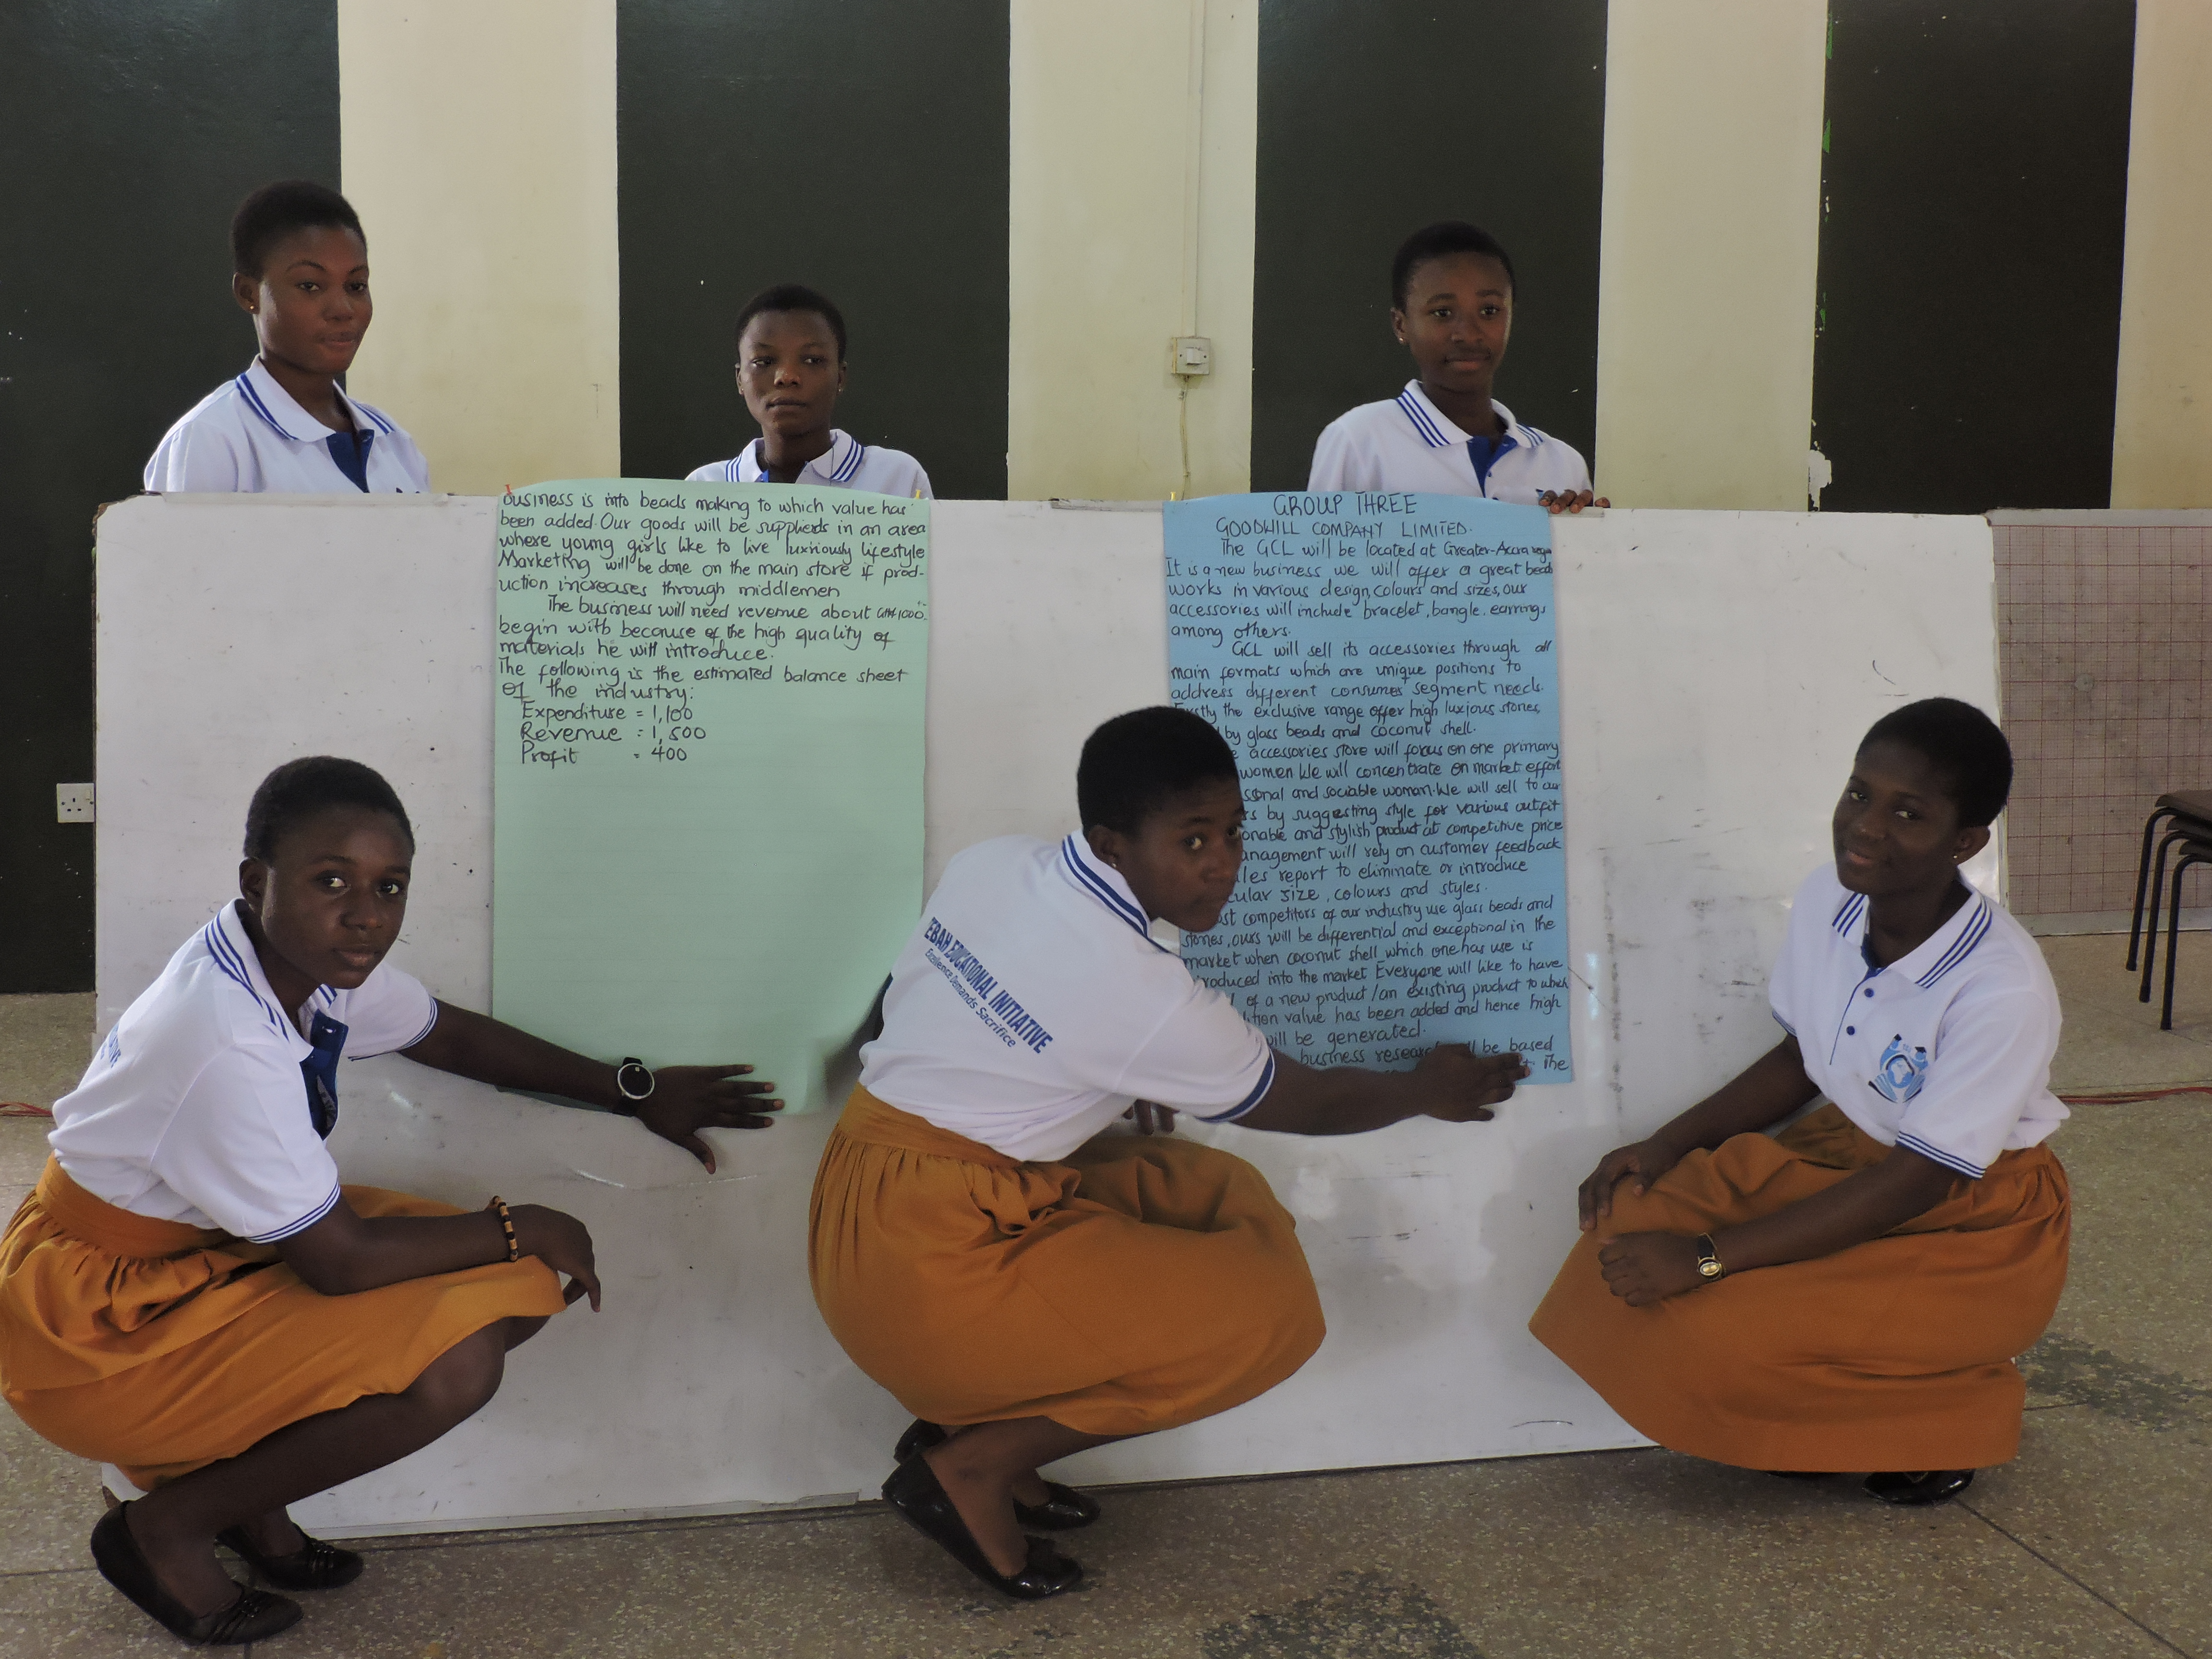 GROUP THREE
GOODWILL COMPANY LIMITED.
The GCL will be located at Greater-Accra region
It is a new business we will offer a great beads
works in various design, colours and sizes, our
accessories will include bracelet, bangle, earrings
among others.
GCL will sell its accessories through all
main formats which are unique positions to
address different consumes segment needs.
Firstly the exclusive range offer high luxious stones,
by glass beads and coconut shell.
accessories store will focus on one primary
women. We will concentrate on market effort
and sociable woman. We will sell to our
by suggesting style for various outfit
and stylish product at competitive price
will rely on customer feedback
report to eliminate or introduce
size, colours and styles.
competitors of our industry use glass beads and
stones, ours will be differential and exceptional in the
market when coconut shell which one has use is
into the market Everyone will like to have
of a new product / an existing product to which
value has been added and hence high
will be generated.
business be based
The
business is into beads making to which value has
been added. Our goods will be supplieds in an area
where young girls like to live luxriously lifestyle
Marketing will be done on the main store if prod-
uction increases through middlemen
The business will need revenue about GH¢1000
begin with because of the high quality of
materials he will introduce.
The following is the estimated balance sheet
of the industry:
Expenditure = 1,100
Revenue = 1,500
Profit = 400
EDUCATIONAL INITIATIVE
Excellence Demands Sacrifice